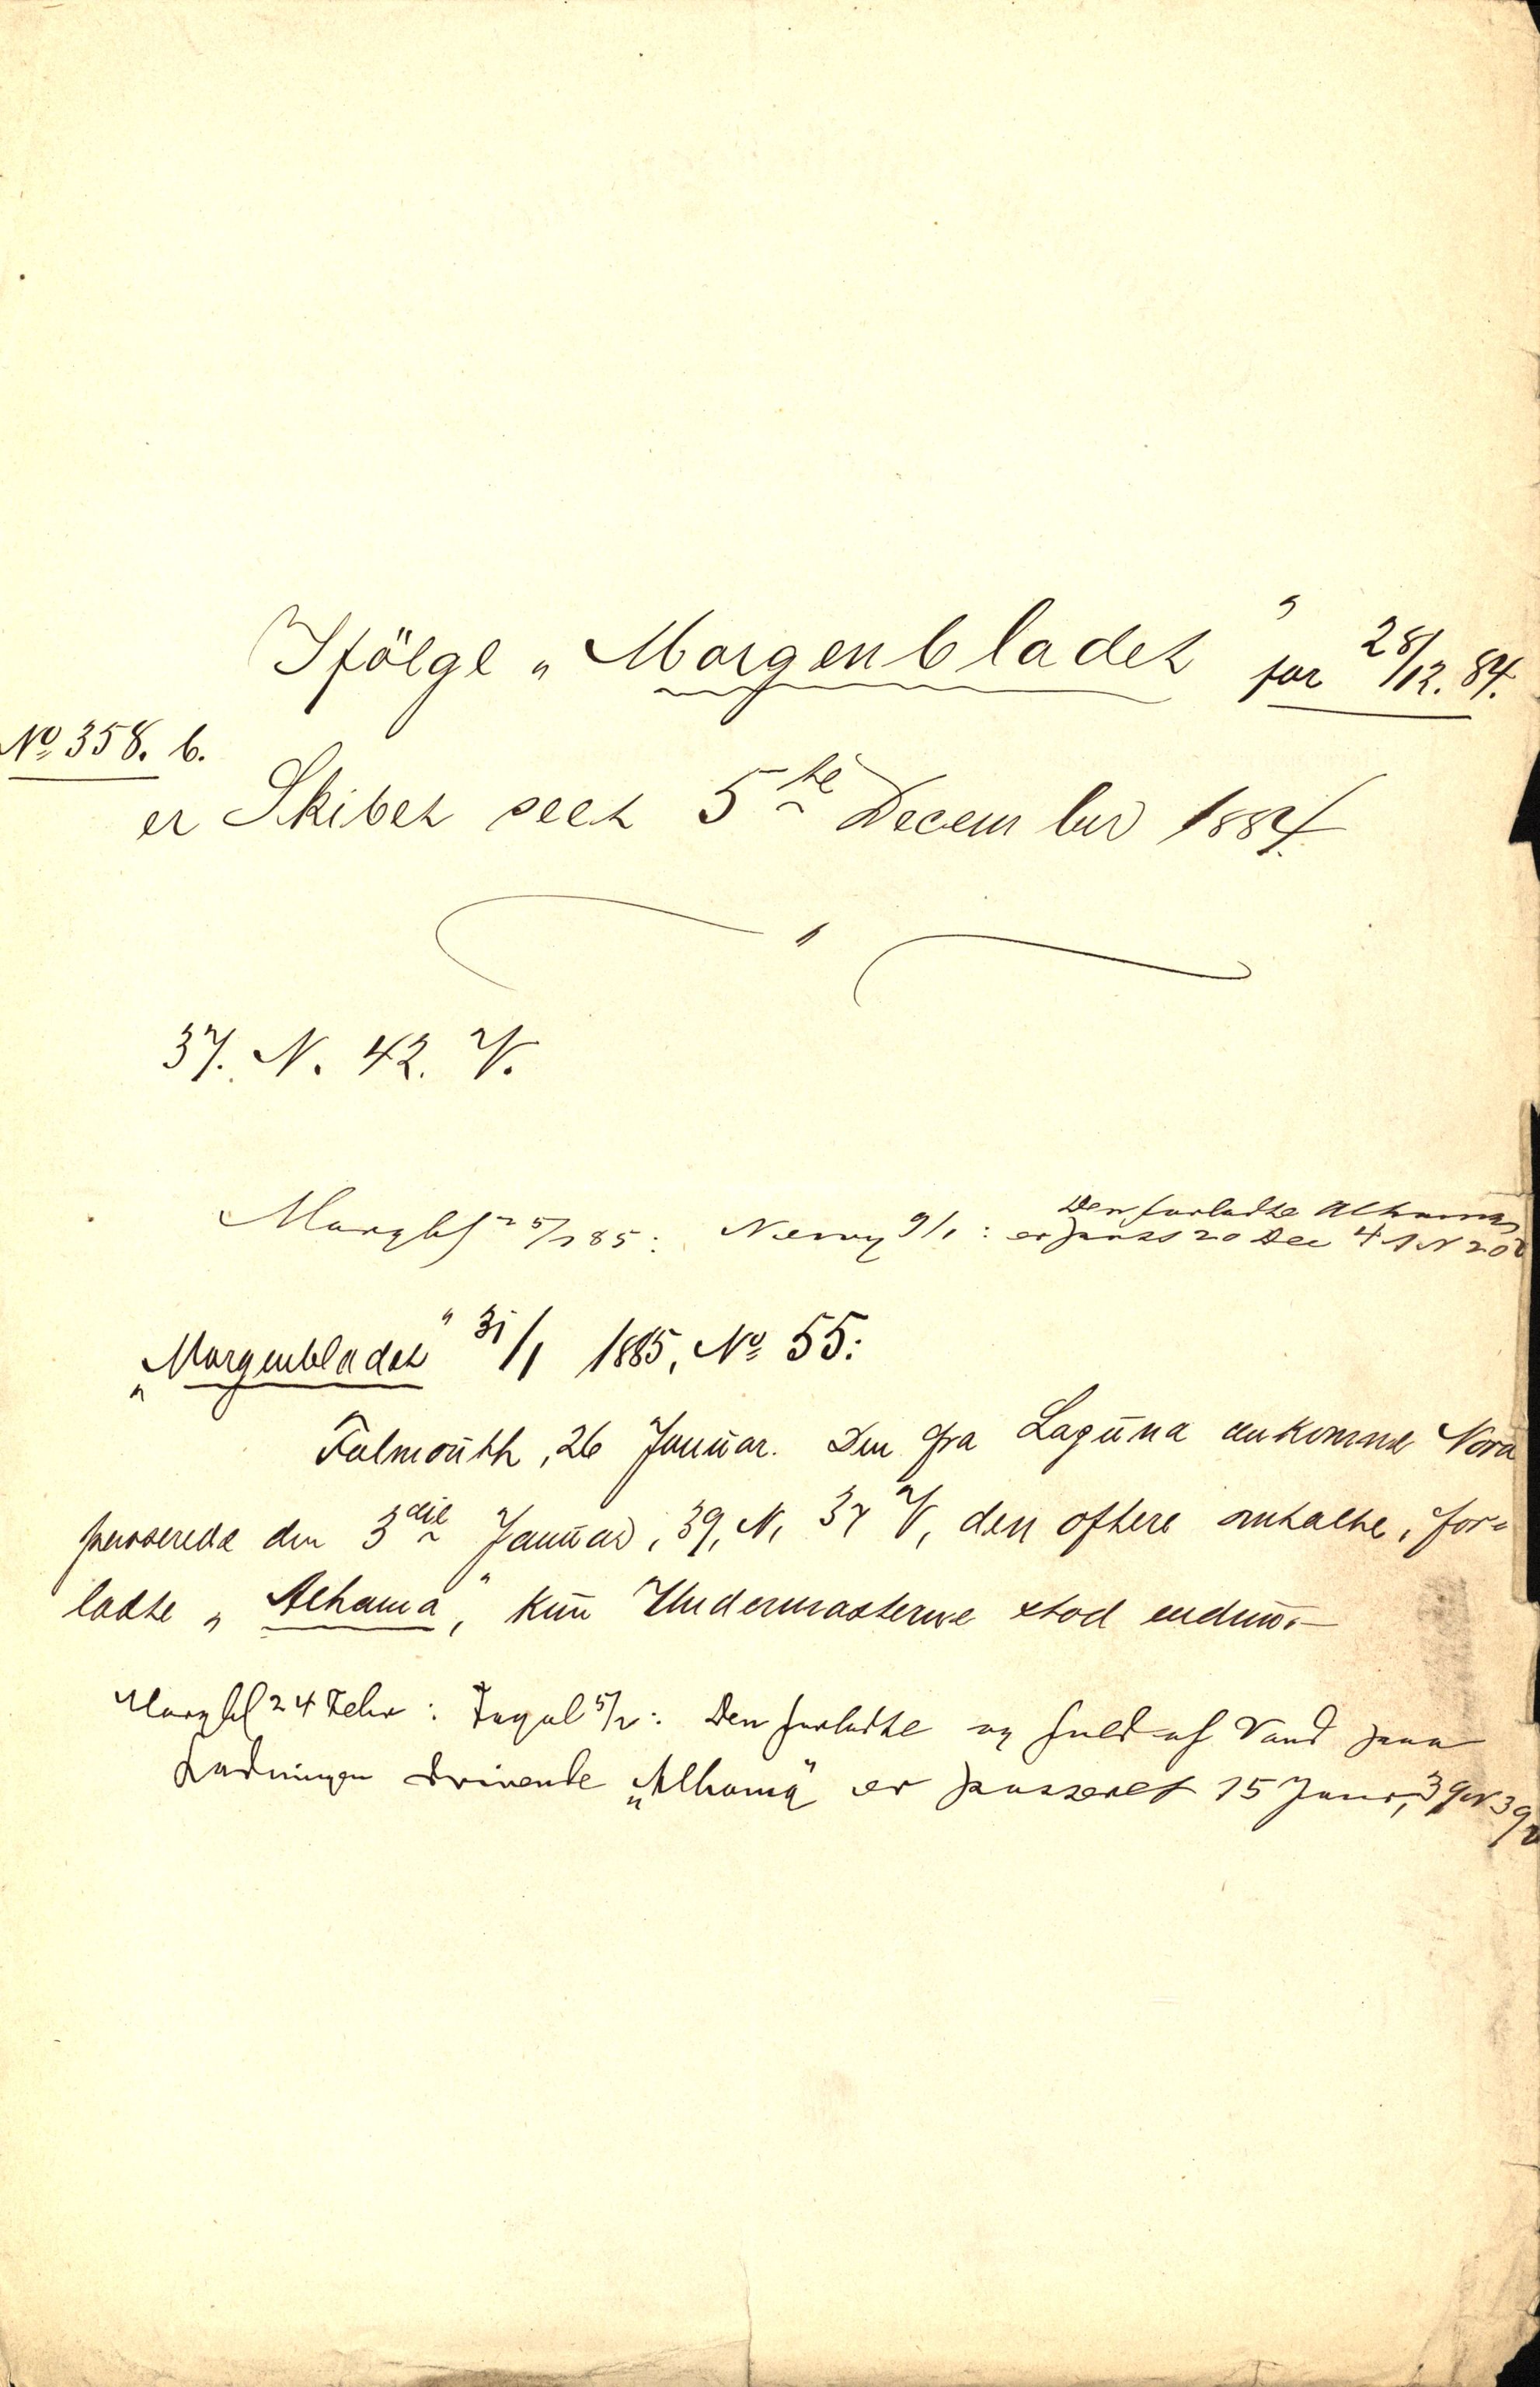 Ifölge „Morgenbladet" for 28/12. 84.
No 358. b.
er Skibet seet 5te December 1884.
37. N. 42. V.
Morgbl 25/1 85: 9/1: Den forladte Alhama
er pass 20 Dec 41 N 20
„Morgenbladet" 31/1 1885, No 55:
Falmouth, 26 Januar. Den fra Laguna ankomne Nora
passerede den 3die Januar, 39, N, 37 V, den oftere omtalte, for=
ladte „Alhama", kun Undermasterne stod endnu.—
Morgbl 24 Febr: 5/2: Den forladte og fuld af Vand paa
Ladningen drivende „Alhama" er passeret 15 Janr, 39 N 39